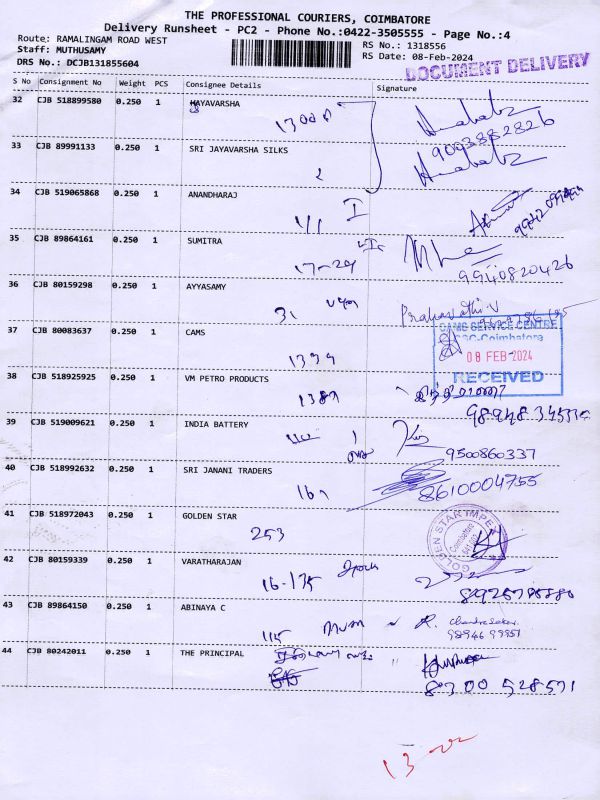 THE PROFESSIONAL COURIERS, COIMBATORE
Delivery Runsheet - PC2 - Phone No.:0422-3505555 - Page No.:4
Route: RAMALINGAM ROAD WEST
RS No.: 1318556
Staff: MUTHUSAMY
RS Date: 08-Feb-2024
DRS No.: DCJB131855604
DOCUMENT DELIVERY
S No Consignment No Weight PCS Consignee Details Signature
32 CJB 518899580 0.250 1 JAYAVARSHA
9003882826
33 CJB 89991133 0.250 1 SRI JAYAVARSHA SILKS
34 CJB 519065868 0.250 1 ANANDHARAJ
1/1 I
35 CJB 89864161 0.250 1 SUMITRA
17-29
9940820426
36 CJB 80159298 0.250 1 AYYASAMY
31
Prabavathi.V
37 CJB 80083637 0.250 1 CAMS
CAMS SERVICE CENTRE
CSC-Coimbatore
08 FEB 2024
RECEIVED
38 CJB 518925925 0.250 1 VM PETRO PRODUCTS
39 CJB 519009621 0.250 1 INDIA BATTERY
9500860337
40 CJB 518992632 0.250 1 SRI JANANI TRADERS
8610004755
41 CJB 518972043 0.250 1 GOLDEN STAR
253
GOLDEN STAR IMPEX
Coimbatore
42 CJB 80159339 0.250 1 VARATHARAJAN
16-175
43 CJB 89864150 0.250 1 ABINAYA C
115
R. Chandrasekar
98946 99951
44 CJB 80242011 0.250 1 THE PRINCIPAL
8700 528571